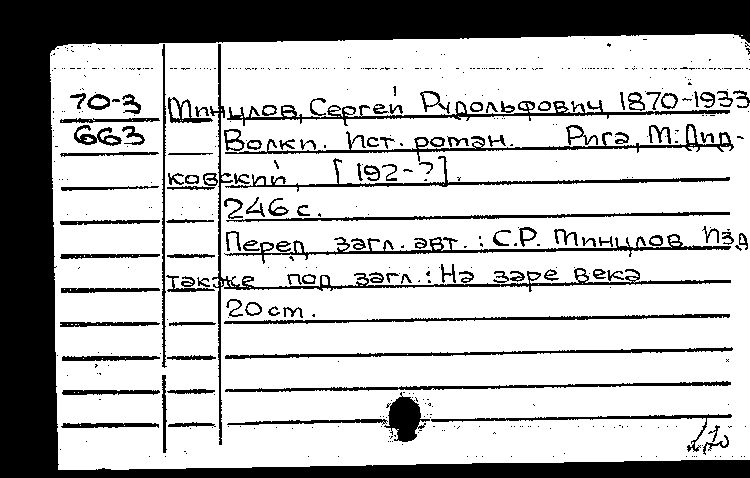 70-3 Минцлов, Сергей Рудольфович, 1870-1933
663 Волки. Ист. роман. Рига, М. Дид-
ковский, [192-?].
246 с.
Перед загл. авт.: С.Р. Минцлов Изд
также под загл.: На заре века
20 см.